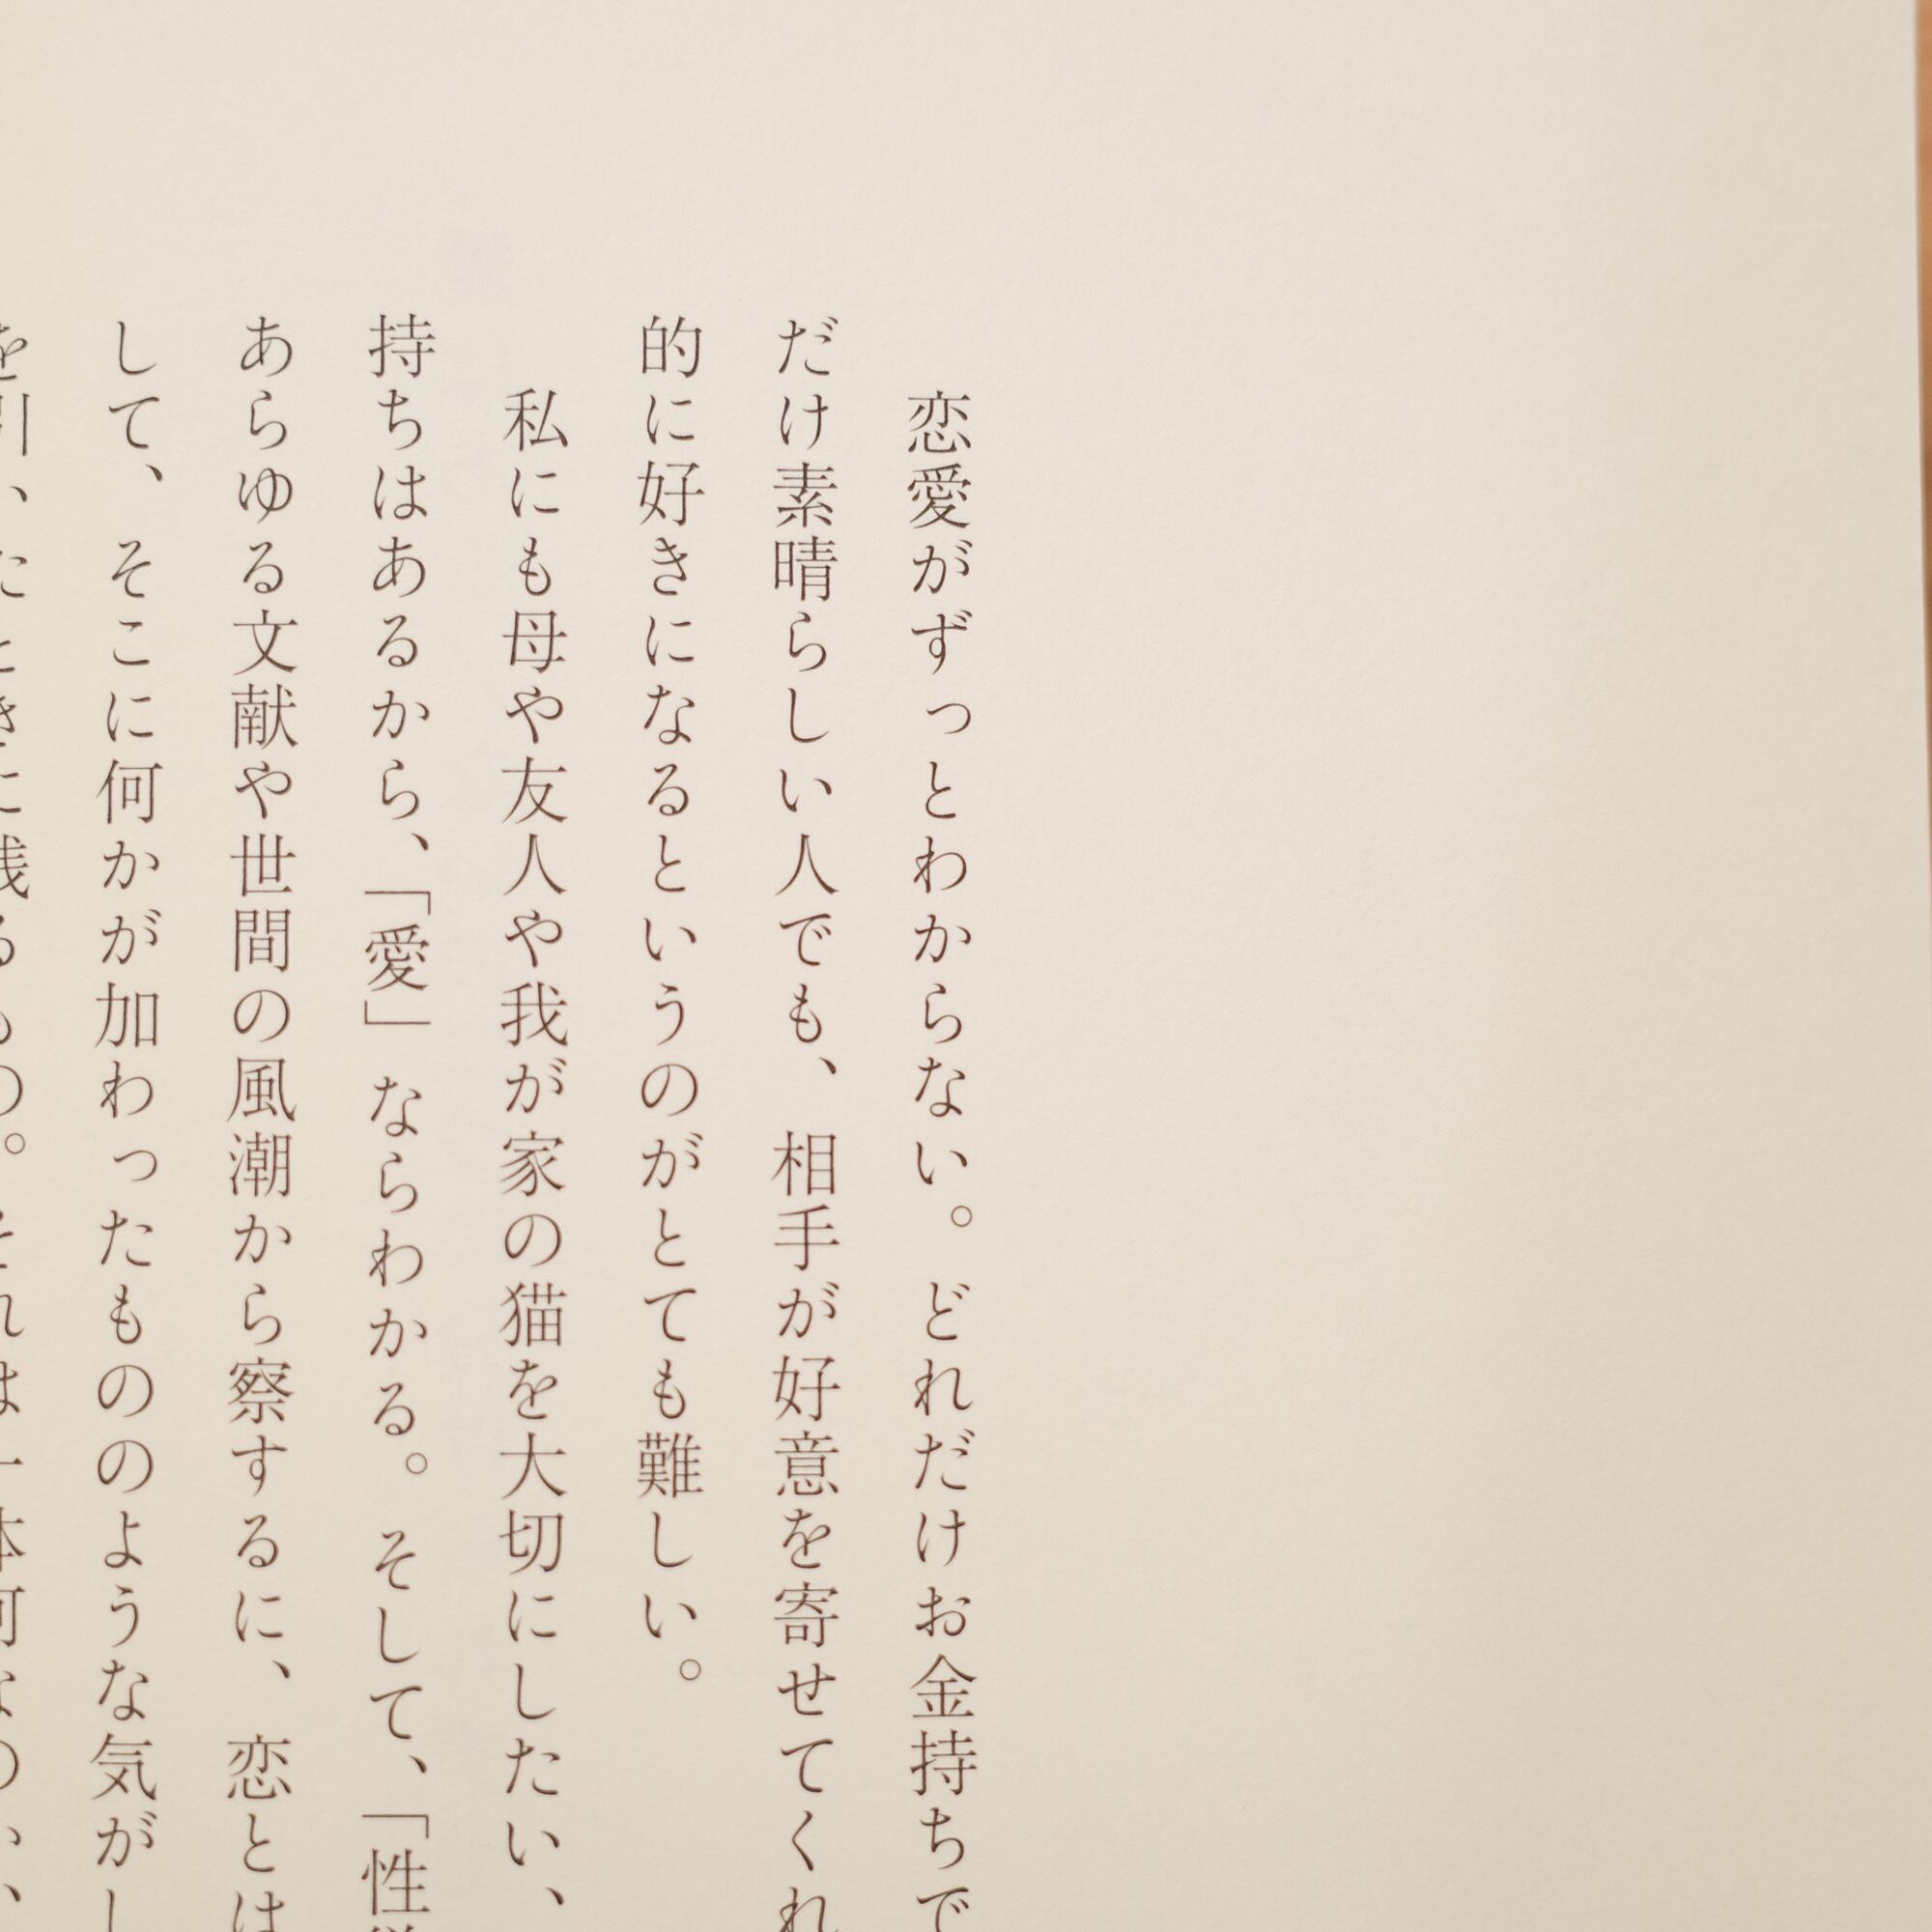 恋愛がずっとわからない。どれだけお金持ちで
だけ素晴らしい人でも、相手が好意を寄せてくれ
的に好きになるというのがとても難しい。
私にも母や友人や我が家の猫を大切にしたい、
持ちはあるから、「愛」ならわかる。そして、「性
あらゆる文献や世間の風潮から察するに、恋とは
して、そこに何かが加わったもののような気がし